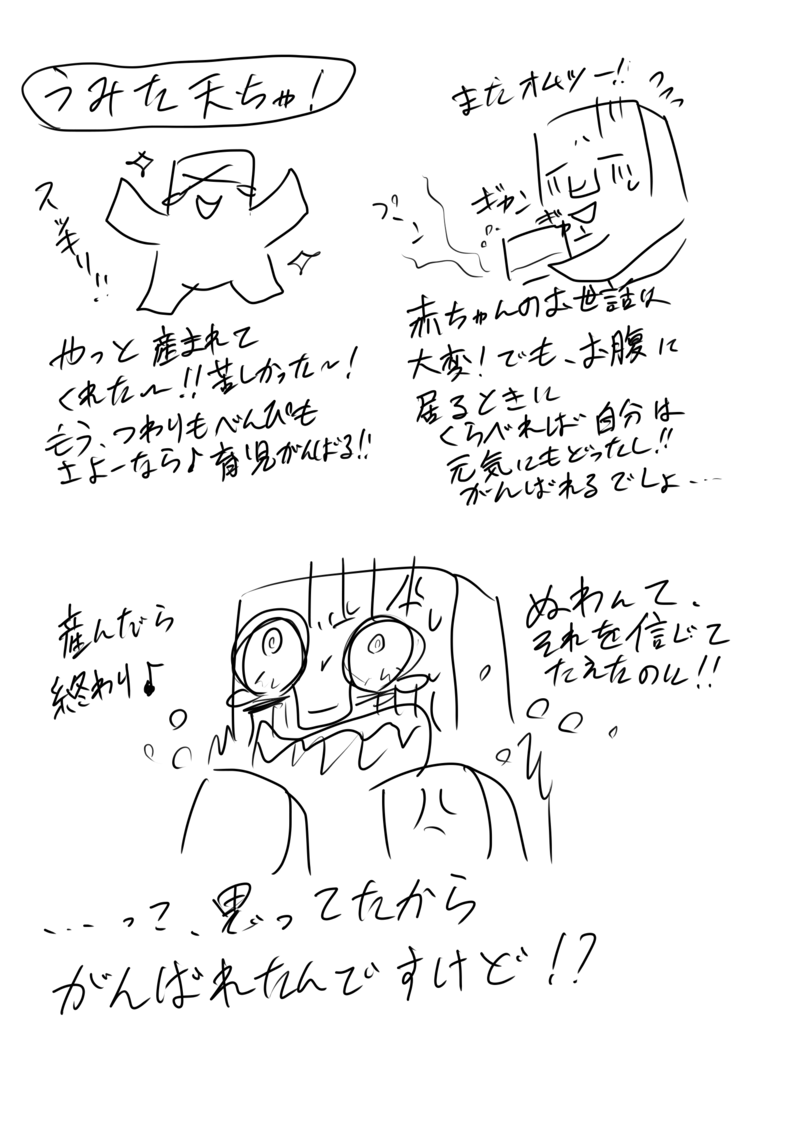 うみた天ちゃ!
スッキリ!!
やっと産まれて
くれた〜!!苦しかった〜!
もう、つわりもべんぴも
さよーなら♪育児がんばる!!
またオムツー!!
プーン
ギャン
ギャン
赤ちゃんのお世話は
大変!でも、お腹に
居るときに
くらべれば自分は
元気にもどったし!!
がんばれるでしょ…
産んだら
終わり♪
ぬわんて、
それを信じて
たえたのに!!
…って、思ってたから
がんばれたんですけど!?